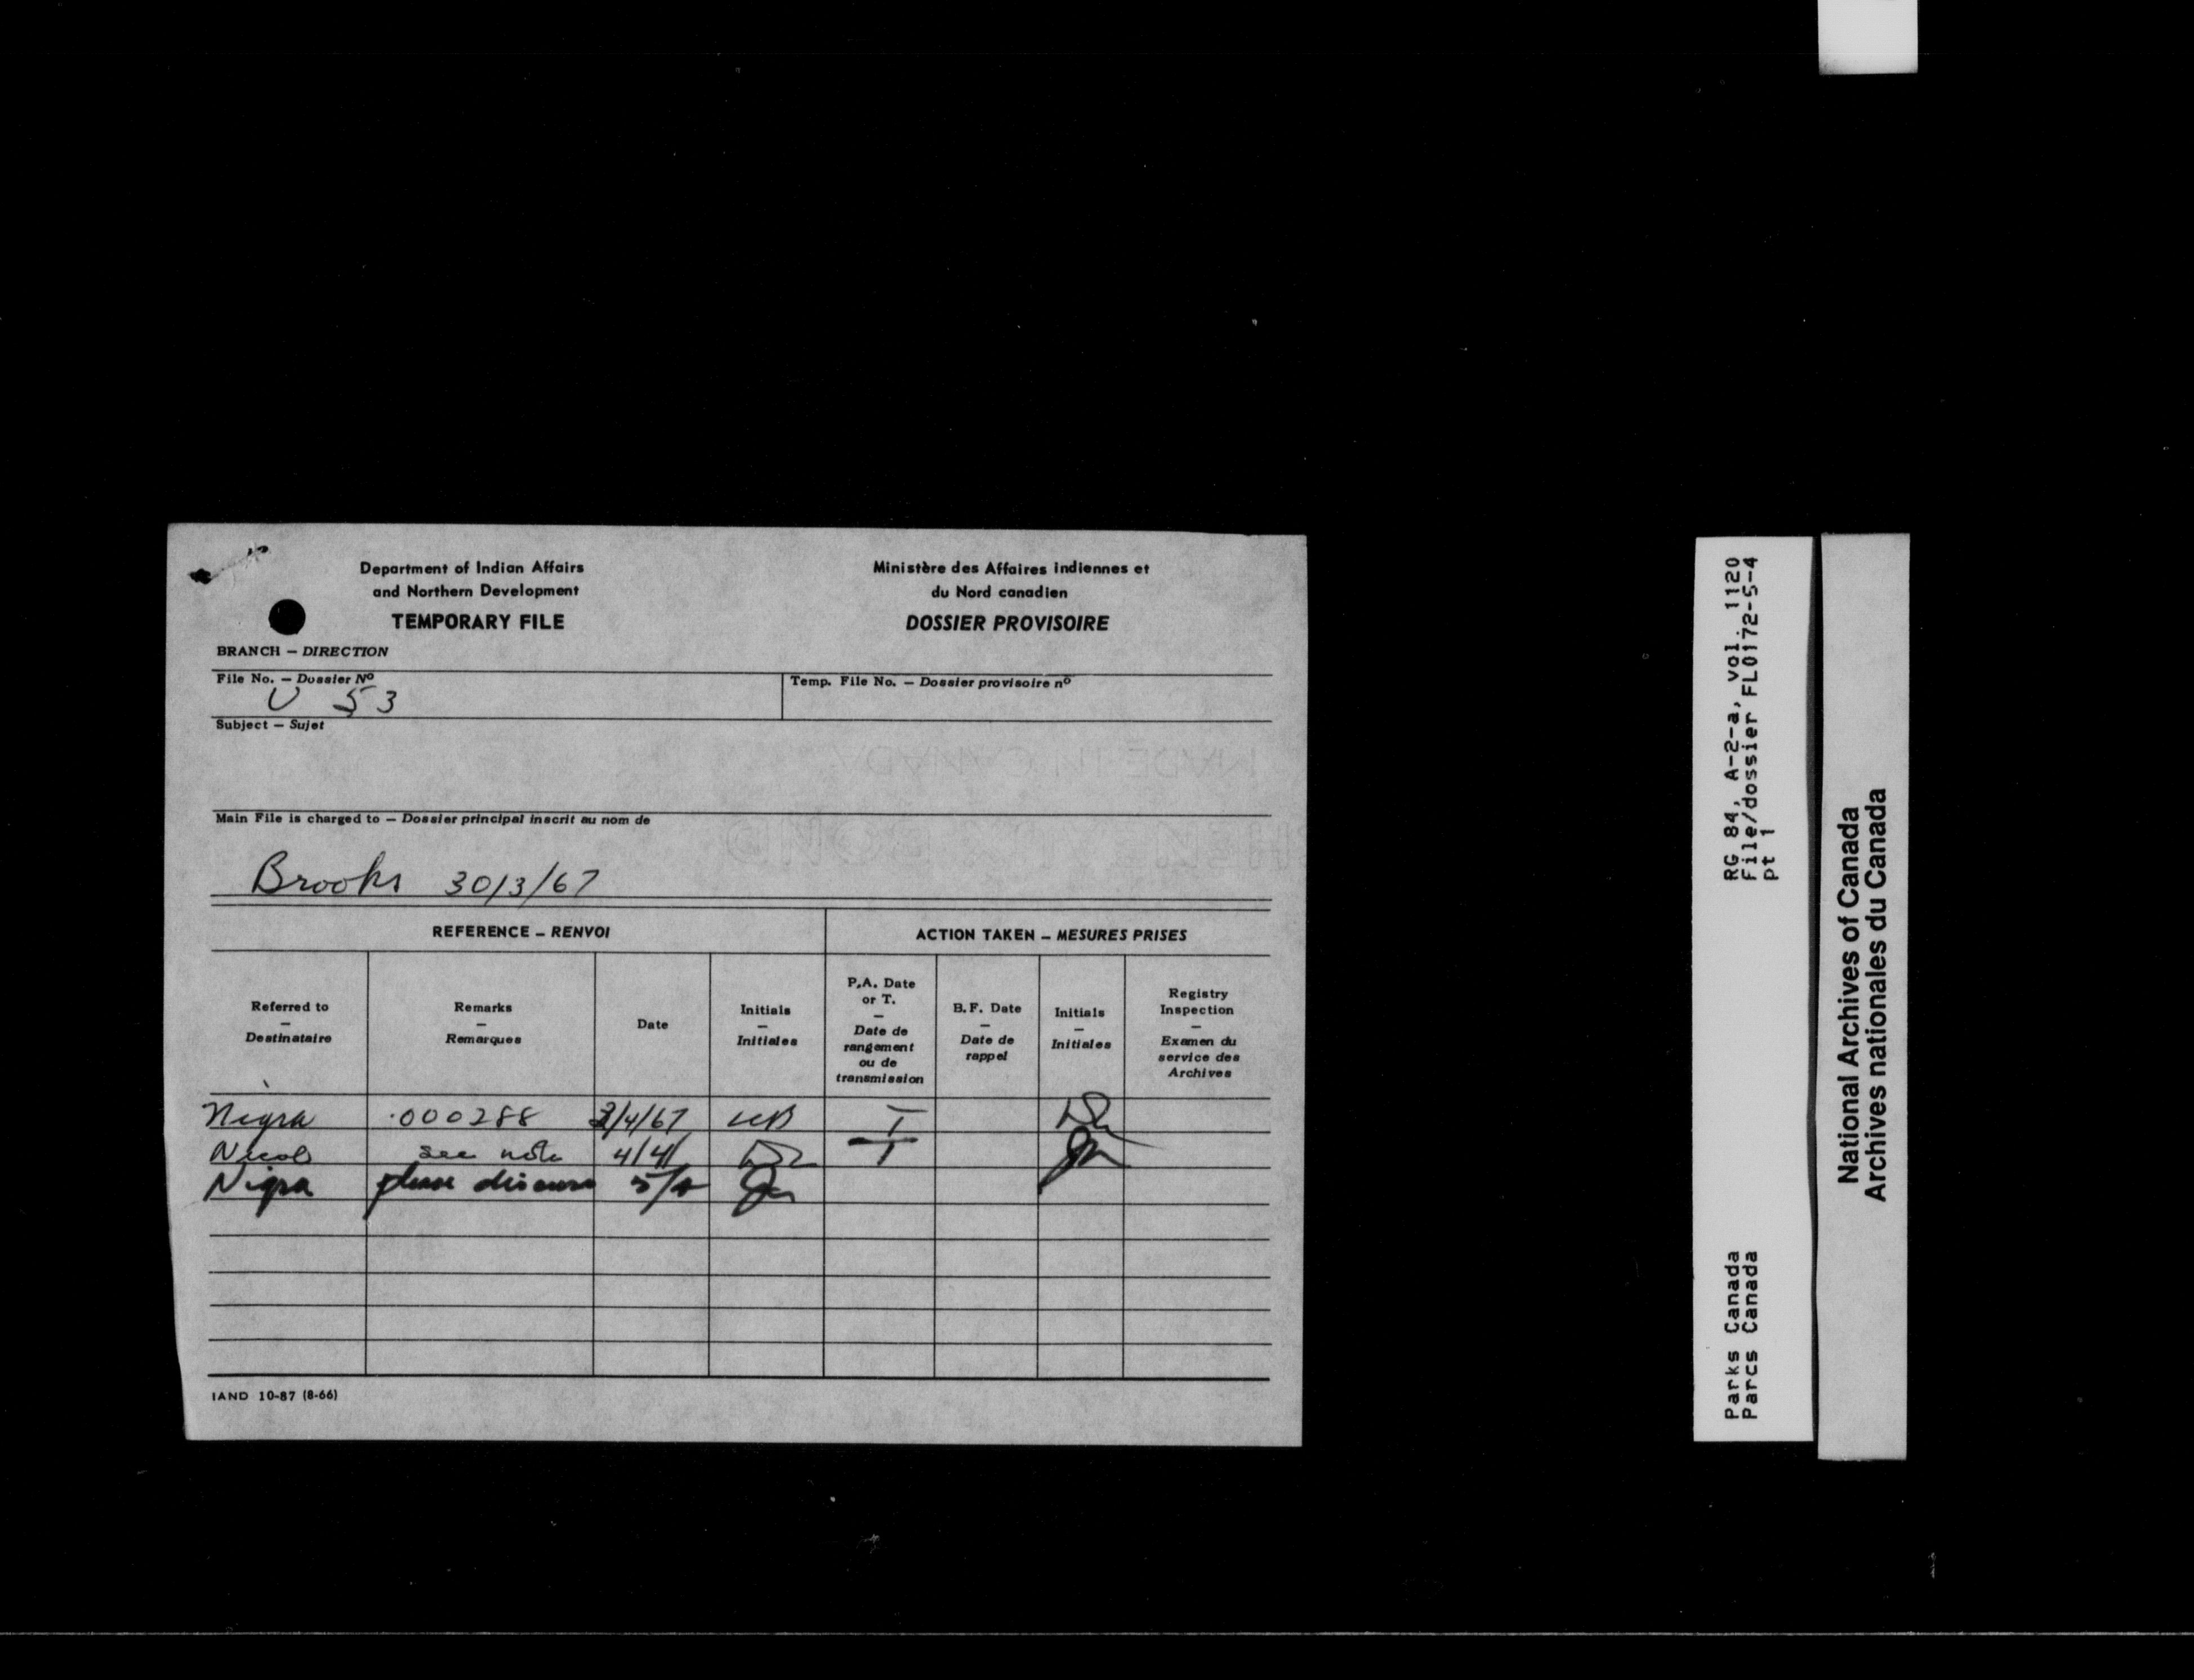 Department of Indian Affairs
and Northern Development
TEMPORARY FILE
Ministère des Affaires indiennes et
du Nord canadien
DOSSIER PROVISOIRE
BRANCH – DIRECTION
File No. – Dossier Nº
U 53
Temp. File No. – Dossier provisoire nº
Subject – Sujet
Main File is charged to – Dossier principal inscrit au nom de
Brooks 30/3/67
REFERENCE – RENVOI
ACTION TAKEN – MESURES PRISES
Referred to
–
Destinataire
Remarks
–
Remarques
Date
Initials
–
Initiales
P.A. Date
or T.
–
Date de
rangement
ou de
transmission
B.F. Date
–
Date de
rappel
Initials
–
Initiales
Registry
Inspection
–
Examen du
service des
Archives
Nigra 000288 3/4/67 T
Nicol see note 4/4/ T
Nigra please discuss 5/4
IAND 10-87 (8-66)
RG 84, A-2-a, vol. 1120
File/dossier FL0172-5-4
pt 1
Parks Canada
Parcs Canada
National Archives of Canada
Archives nationales du Canada